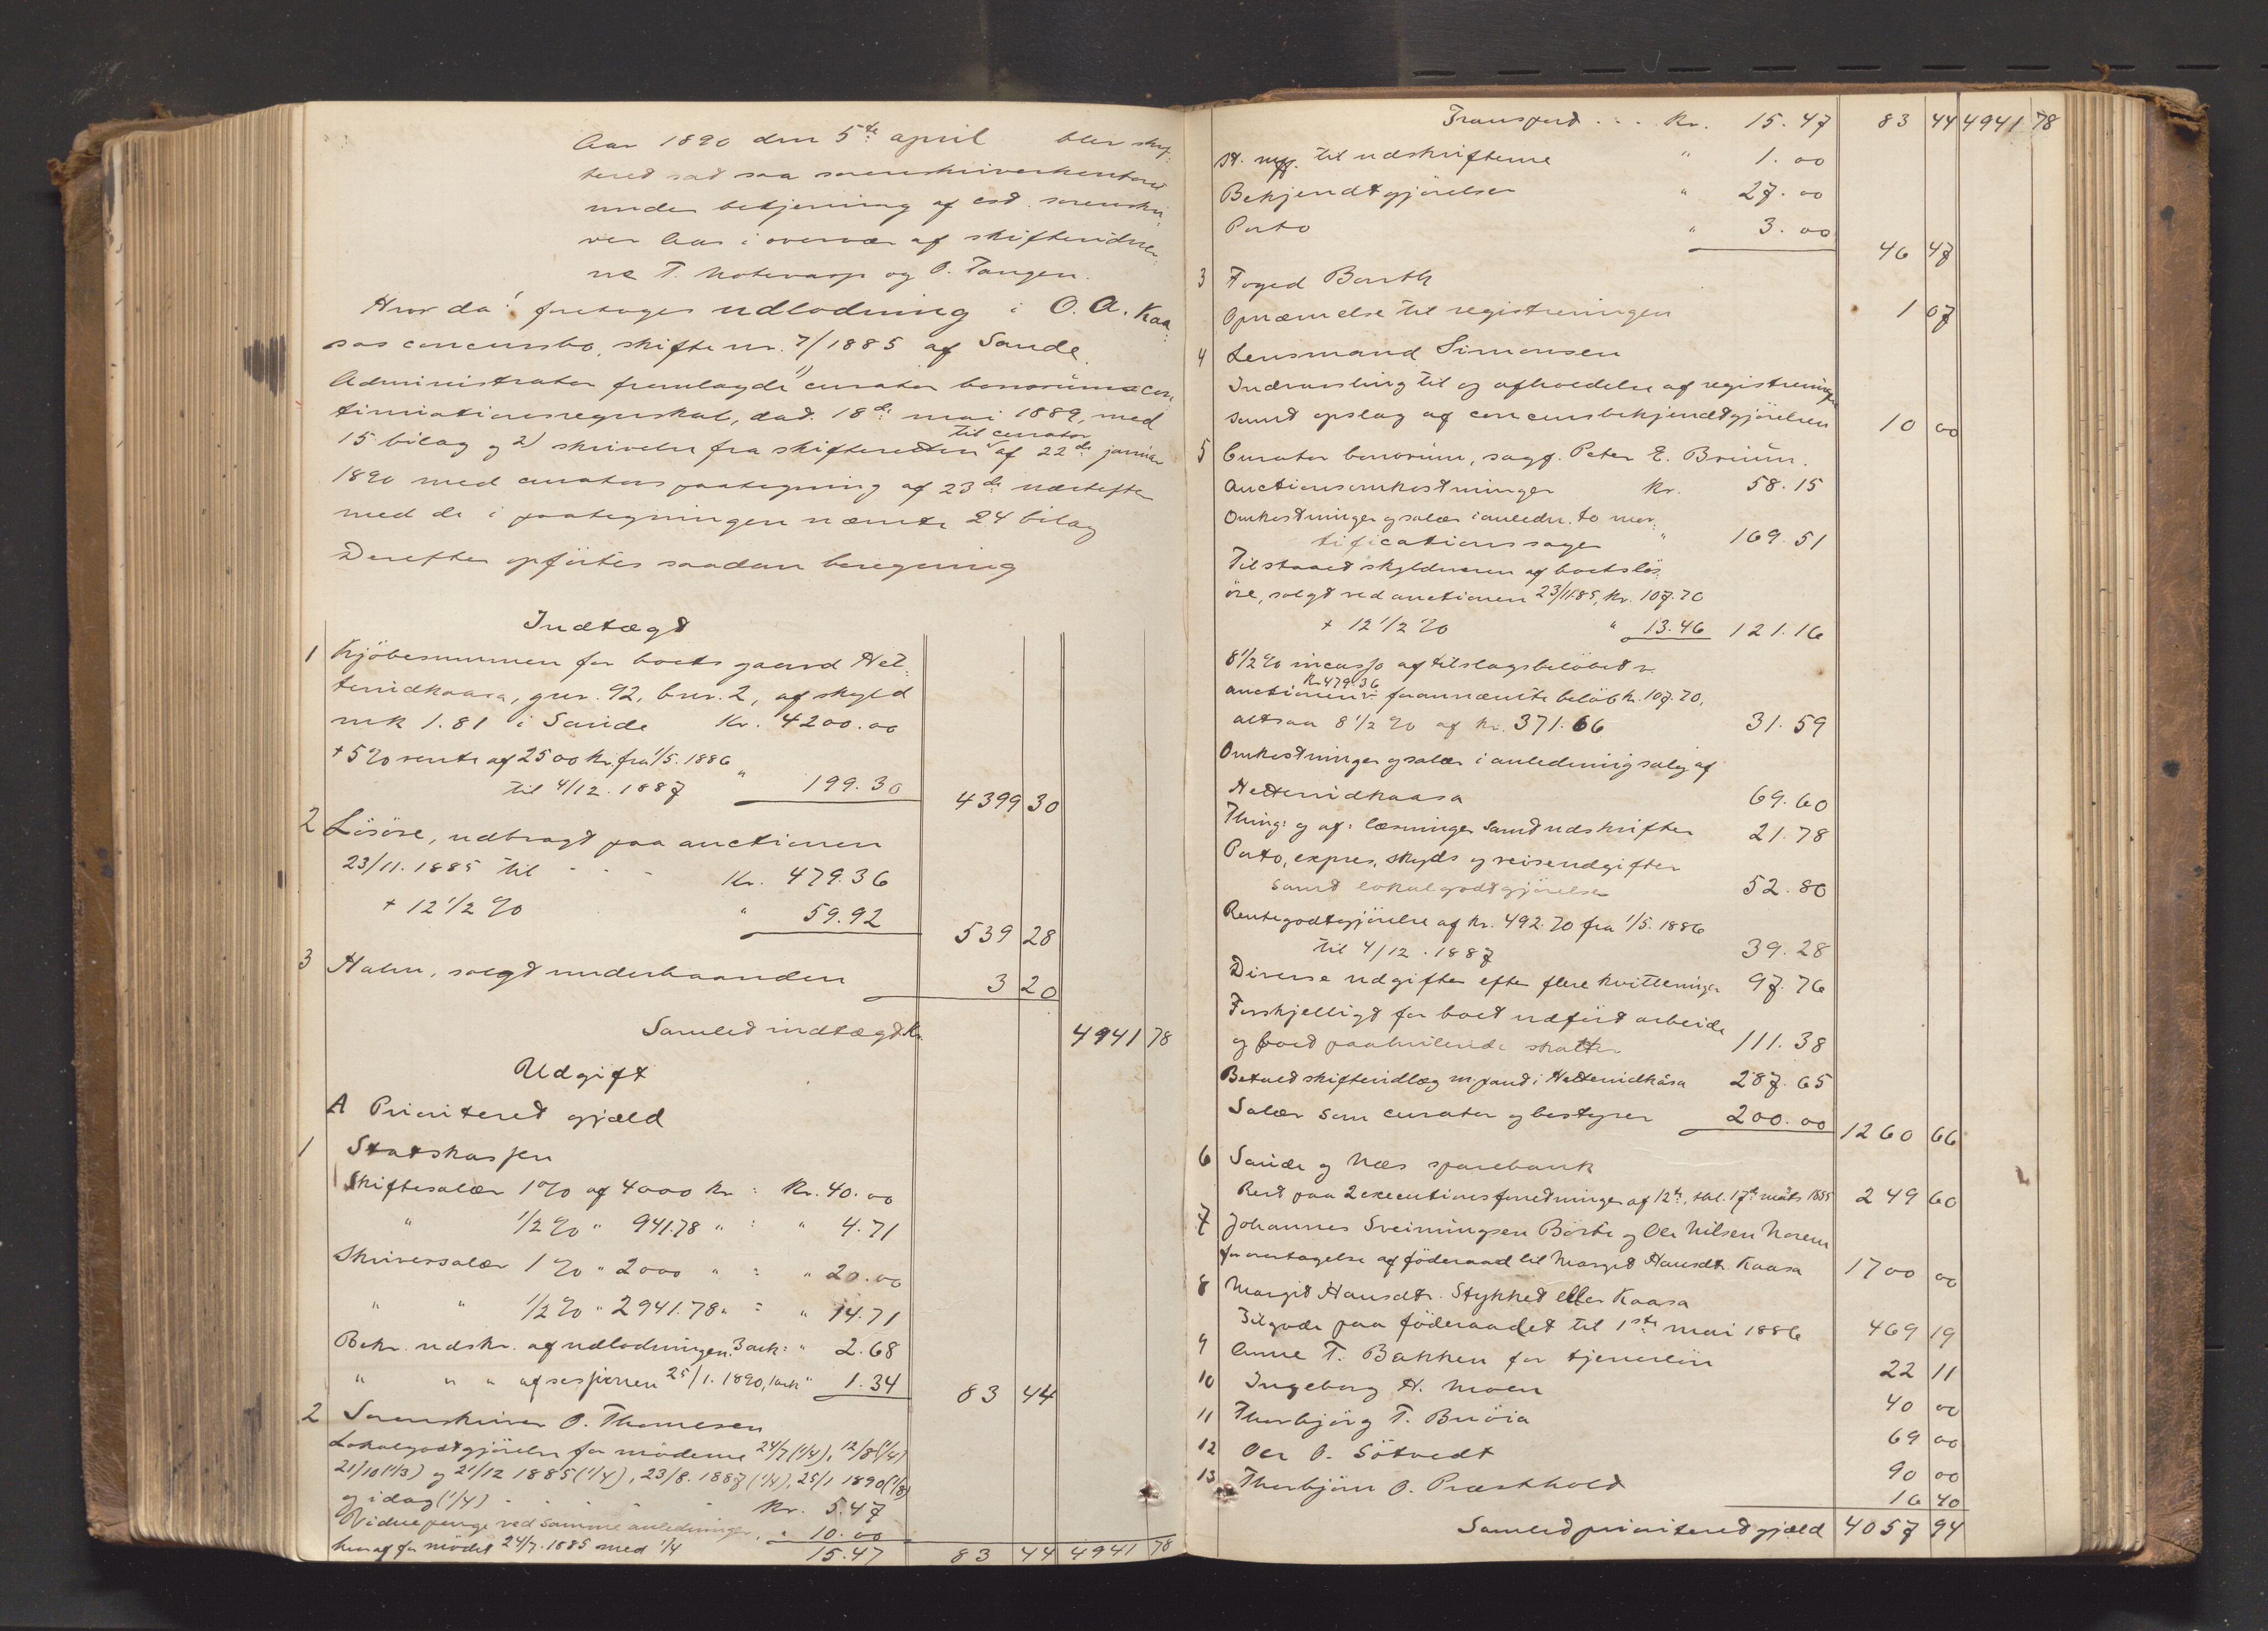 Aar 1890 den 5te april blev skif-
teret sat paa sorenskriverkontoret
under betjening af cst. sorenskri-
ver Aas i overvær af skiftevidner-
ne T. Notevarp og O. Tangen.
Hvor da: foretoges udlodning i O. A. Kaa-
sas concursbo, skifte nr. 7/1885 af Sande.
Administrator fremlagde 1) curator bonorums con-
tinuationsregnskab, dat. 18de mai 1889, med
15 bilag og 2) skrivelse fra skifteretten til curator af 22de januar
1890 med curators paategning af 23de næstefter
med de i paategningen nævnte 24 bilag
Derefter opførtes saadan beregning
Indtægt
1 Kjöbesummen for boets gaard Het-
tenidkaasa, gnr. 92, bnr. 2, af skyld
mk 1.81 i Sande Kr. 4200.00
+ 5% rente af 2500 kr. fra 1/5. 1886
til 4/12. 1887 " 199.30 4399 30
2 Lösöre, udbragt paa auctionen
23/11. 1885 til - - - Kr. 479.36
+ 12 1/2 % " 59.92 539 28
3 Halm, solgt underhaanden 3 20
Samlet indtægt Kr. 4941 78
Udgift
A Prioriteret gjæld
1 Statskassen
Skiftesalær 1% af 4000 kr : Kr. 40.00
" 1/2 % " 941.78 " : " 4.71
Skriversalær 1 % " 2000 " : " 20.00
" " 1/2 % " 2941.78 " = " 14.71
Bekr. udskr. af udlodningen 3 ark: " 2.68
" " " af sessionen 25/1. 1890, 1 ark " 1.34 83 44
2 Sorenskriver O. Thomesen
Lokalgodtgjörelse for möderne 24/7 (1/4), 12/8 (1/4)
21/10 (1/3) og 21/12 1885 (1/4), 23/8. 1887 (1/4), 25/1 1890 (1/8)
og idag (1/4) - - - Kr. 5.47
Vidnepenge ved samme anledninger, " 10.00
heraf for mödet 24/7. 1885 med 1/4 15.47 83 44 4941 78
Transport . . . Kr. 15.47 83 44 4941 78
St. til udskrifterne " 1.00
Bekjendtgjörelser " 27.00
Porto " 3.00 46 47
3 Foged Barth
Opnævnelse til registreringen 1 07
4 Lensmand Simonsen
Indvarsling til og afholdelse af registreringen
samt opslag af concursbekjendtgjörelsen 10 00
5 Curator bonorum, sagf. Peter E. Bruun.
Auctionsomkostninger Kr. 58.15
Omkostninger og salær i anledn. to mor-
tificationssager " 169.51
Tilstaaet skyldneren af boets lös-
öre, solgt ved auctionen 23/11.85, Kr. 107.70
+ 12 1/2 % " 13.46 121.16
8 1/2 % incasso af tilslagsbelöbet v.
auctionen kr 479.36 ÷ forannævnte belöb kr. 107.70,
altsaa 8 1/2 % af kr. 371.66 31.59
Omkostninger og salær i anledning salg af
Hettenidkaasa 69.60
Thing- og af- læsninger samt udskrifter 21.78
Porto, expres, skyds og reiseudgifter
samt lokalgodtgjörelse 52.80
Rentegodtgjörelse af kr. 492.70 fra 1/5. 1886
til 4/12. 1887 39.28
Diverse udgifter efter flere kvitteringer 97.76
Forskjelligt for boet udfört arbeide
og boet paahvilende skatter 111.38
Betalt skifteudlæg m. pant i Hettenidkåsa 287.65
Salær som curator og bestyrer 200.00 1260 66
6 Sande og Næs sparebank
Rest paa 2 executionsforretninger af 12te, ktl. 17de mats 1885 249 60
7 Johannes Sveinungsen Börte og Ole Nilsen Norem
for overtagelse af föderaad til Margit Hansdtr. Kaasa 1700 00
8 Margit Hansdtr. Stykket eller Kaasa
Tilgode paa föderaadet til 1ste mai 1886 469 19
9 Anne T. Bakken for tjenerlön 22 11
10 Ingeborg H. Moen 40 00
11 Thorbjörg T. Bruöia 69 00
12 Ole O. Sötvedt 90 00
13 Thorbjörn O. Præsthold 16 40
Samlet prioriteret gjæld 4057 94